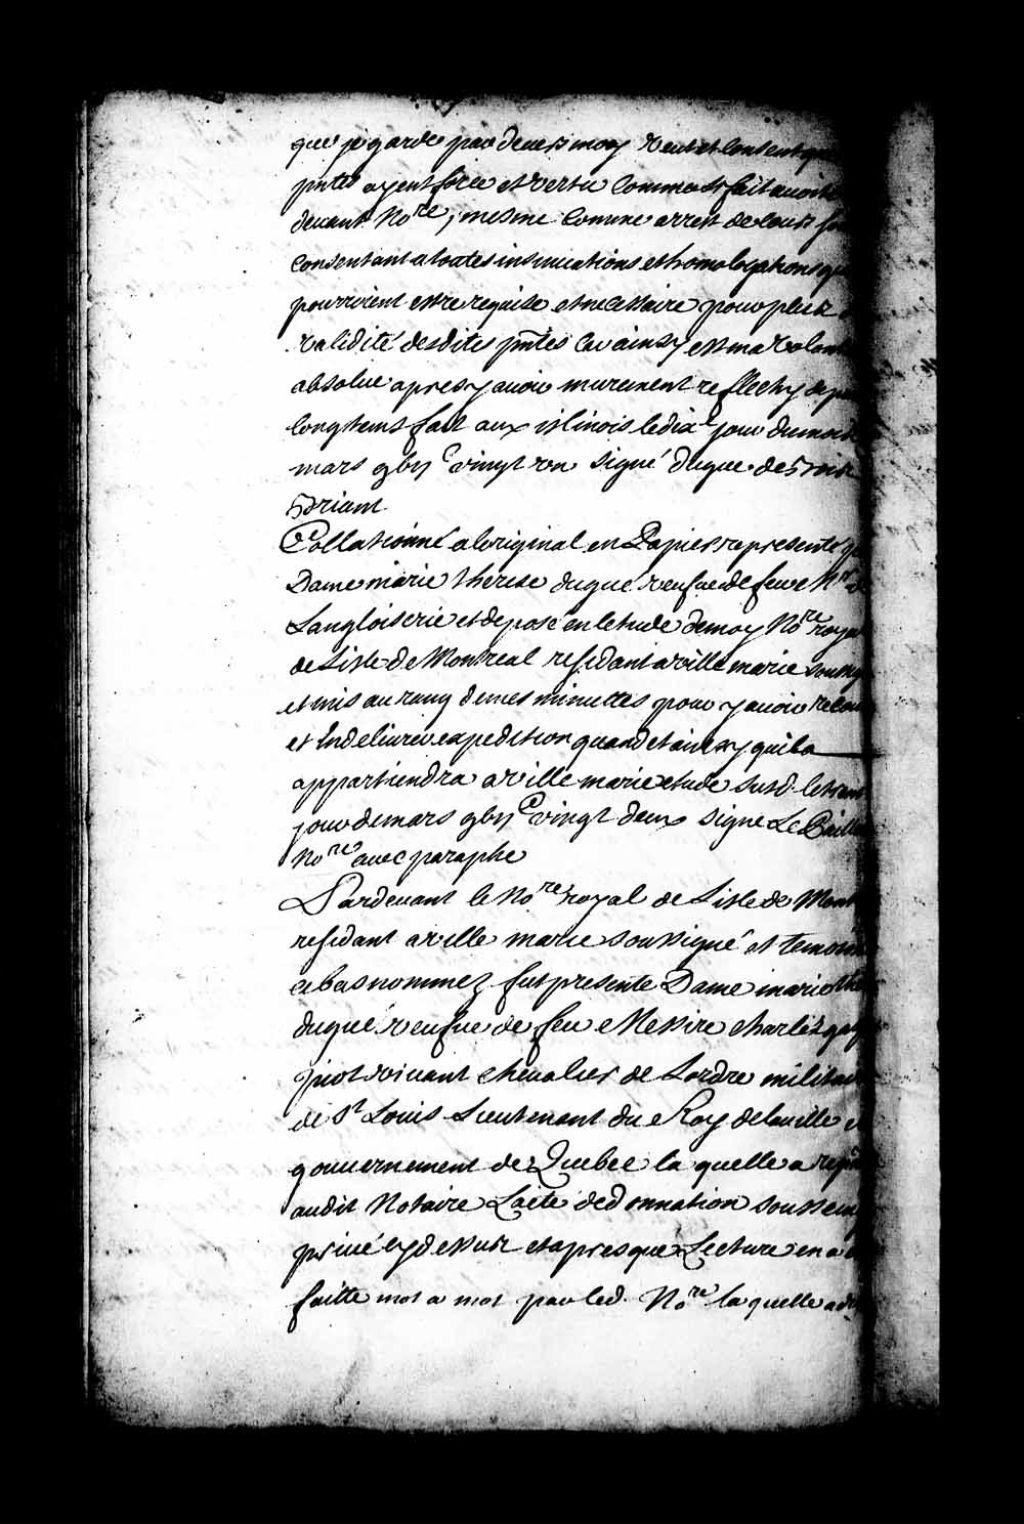 que je garde par devers moy veut et consent que
pntes ayent force et vertu comme si fait avoit
devant Nore, mesme comme arrest de cour
consentant a toutes insinuations et homologations que
pourroient estre requise et necessaire pour plus
validité desdites pntes car ainsy est ma volonté
absolue apres y avoir murement reflechy depuis
longtems fait aux islinois le dixe jour du mois de
mars gbij C vingt un signé dugue
Collationné a loriginal en Papier representé
Dame marie therese dugué veufue de feu Mr
Langloiserie et deposé en letude de moy Nore royal
de Lisle de Montreal residant a ville marie sousigné
et mis au rang de mes minuttes pour y avoir recours
et En delivrer expedition quand et ainsy quil
appartiendra a ville marie etude susd. le
jour de mars gbij C vingt deux signé Le Pailleur
Nore avec paraphe
Pardevant le Nore royal de Lisle de Mont
residant a ville marie soussigné et temoins
cy bas nommez fut presente Dame marie the
dugué veufue de feu Messire Charles
piot vivant chevalier de Lordre militaire
de St Louis Lieutenant du Roy de la ville et
gouvernement de Quebec la quelle a
audit Notaire Lacte de donnation sous seing
privé cy dessus et apres que Lecture en a
faitte mot a mot par led. Nore la quelle a